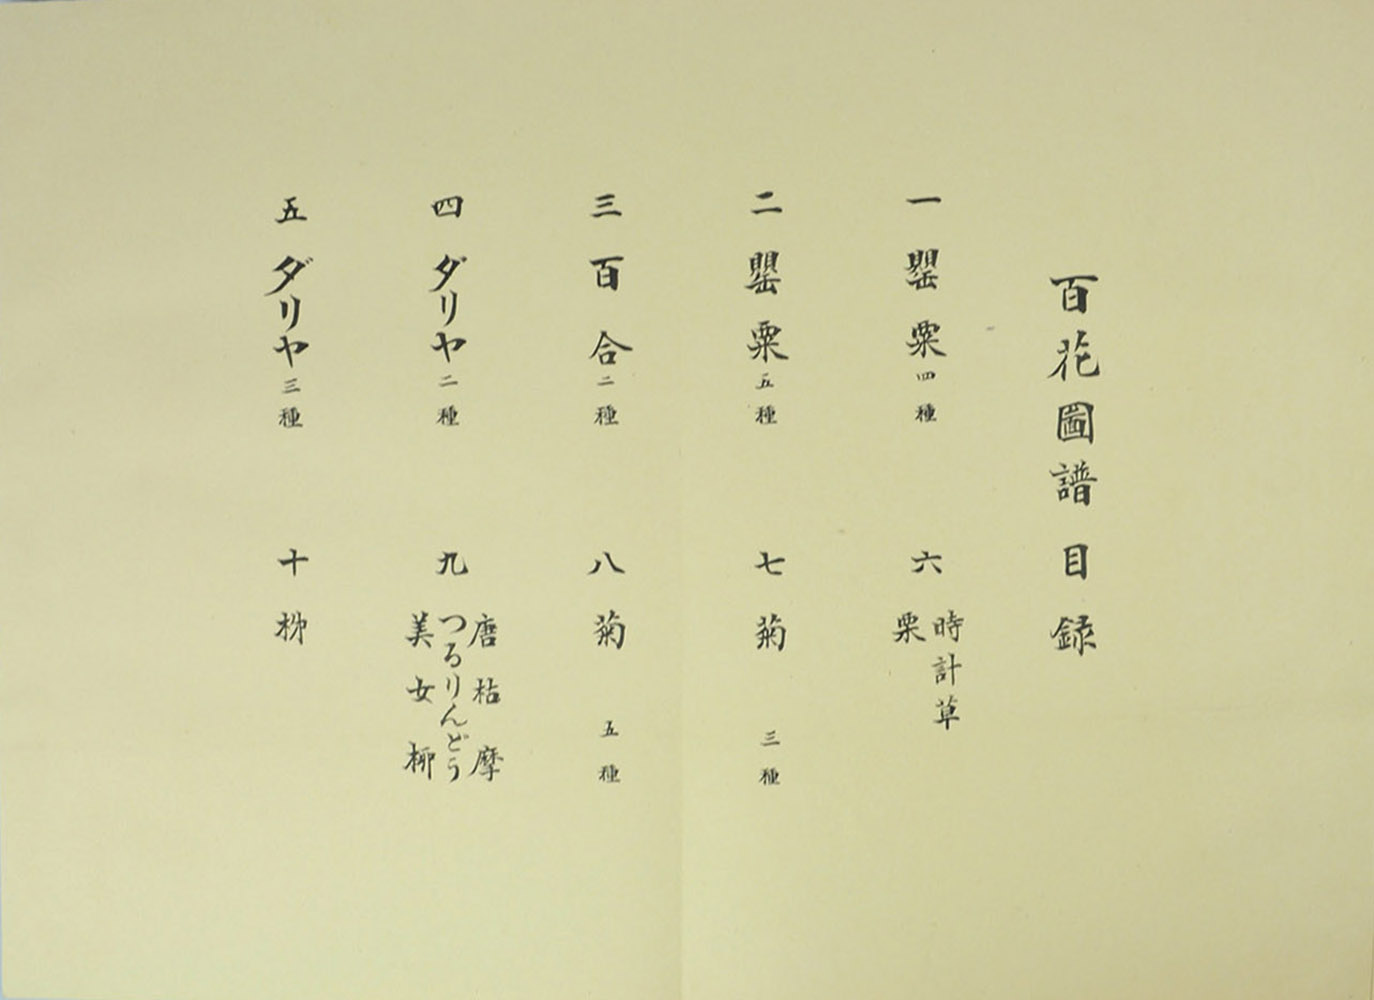 百花圖譜 目録
一 罌粟 四種
二 罌粟 五種
三 百合 二種
四 ダリヤ 二種
五 ダリヤ 三種
六 時計草
栗
七 菊 三種
八 菊 五種
九 唐枯摩
つるりんどう
美女柳
十 柳